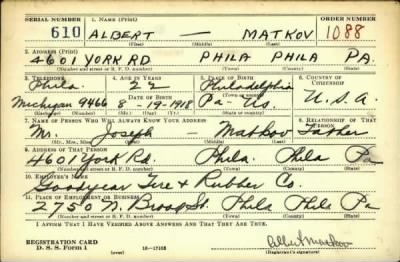 SERIAL NUMBER 1. NAME (Print) ORDER NUMBER
610 ALBERT — MATKOV 1088
(First) (Middle) (Last)
2. ADDRESS (Print)
4601 YORK RD PHILA PHILA PA.
(Number and street or R. F. D. number) (Town) (County) (State)
3. TELEPHONE 4. AGE IN YEARS 5. PLACE OF BIRTH 6. COUNTRY OF CITIZENSHIP
Phila. 22 Philadelphia
DATE OF BIRTH (Town or county)
Michigan 9466 8 - 19 - 1918 Pa - Us. U.S.A.
(Exchange) (Number) (Mo.) (Day) (Yr.) (State or country)
7. NAME OF PERSON WHO WILL ALWAYS KNOW YOUR ADDRESS 8. RELATIONSHIP OF THAT PERSON
Mr. Joseph — Matkov Father
(Mr., Mrs., Miss) (First) (Middle) (Last)
9. ADDRESS OF THAT PERSON
4601 York Rd. Phila. Phila Pa
(Number and street or R. F. D. number) (Town) (County) (State)
10. EMPLOYER'S NAME
Goodyear Tire & Rubber Co.
11. PLACE OF EMPLOYMENT OR BUSINESS
2750 N. Broad St. Phila Phila Pa
(Number and street or R. F. D. number) (Town) (County) (State)
I AFFIRM THAT I HAVE VERIFIED ABOVE ANSWERS AND THAT THEY ARE TRUE.
REGISTRATION CARD
D. S. S. Form 1 (over) 16—17105 Albert Matkov
(Registrant's signature)